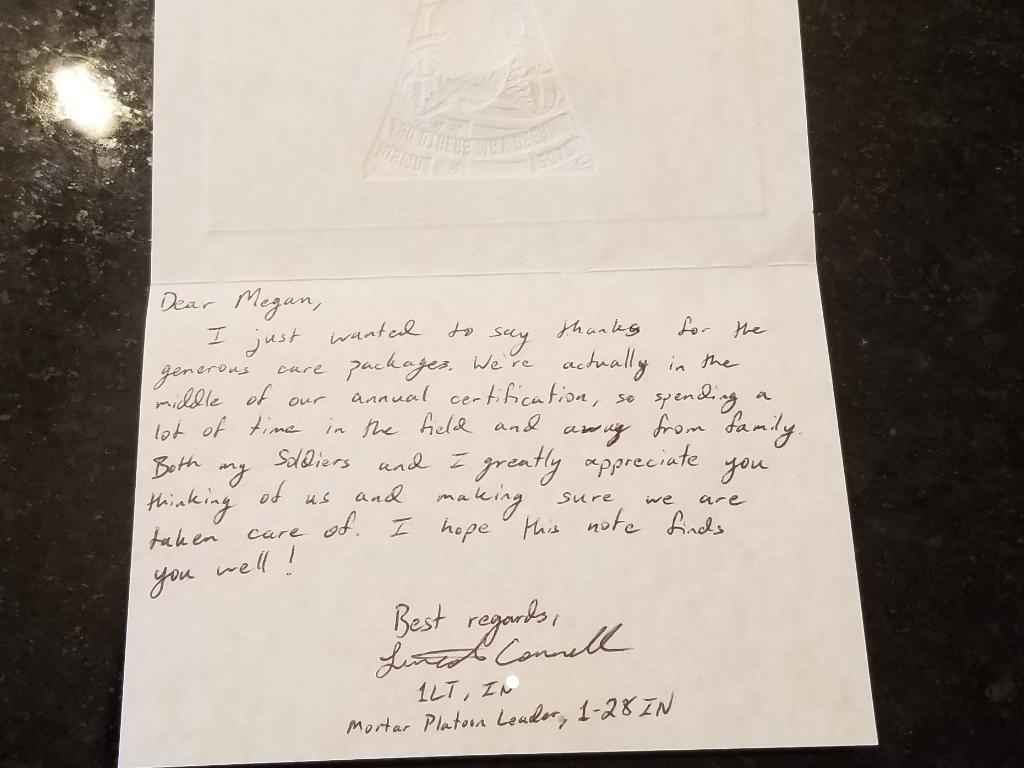 Dear Megan,
I just wanted to say thanks for the
generous care packages. We're actually in the
middle of our annual certification, so spending a
lot of time in the field and away from family.
Both my Soldiers and I greatly appreciate you
thinking of us and making sure we are
taken care of. I hope this note finds
you well!
Best regards,
Connell
1LT, IN
Mortar Platoon Leader, 1-28 IN